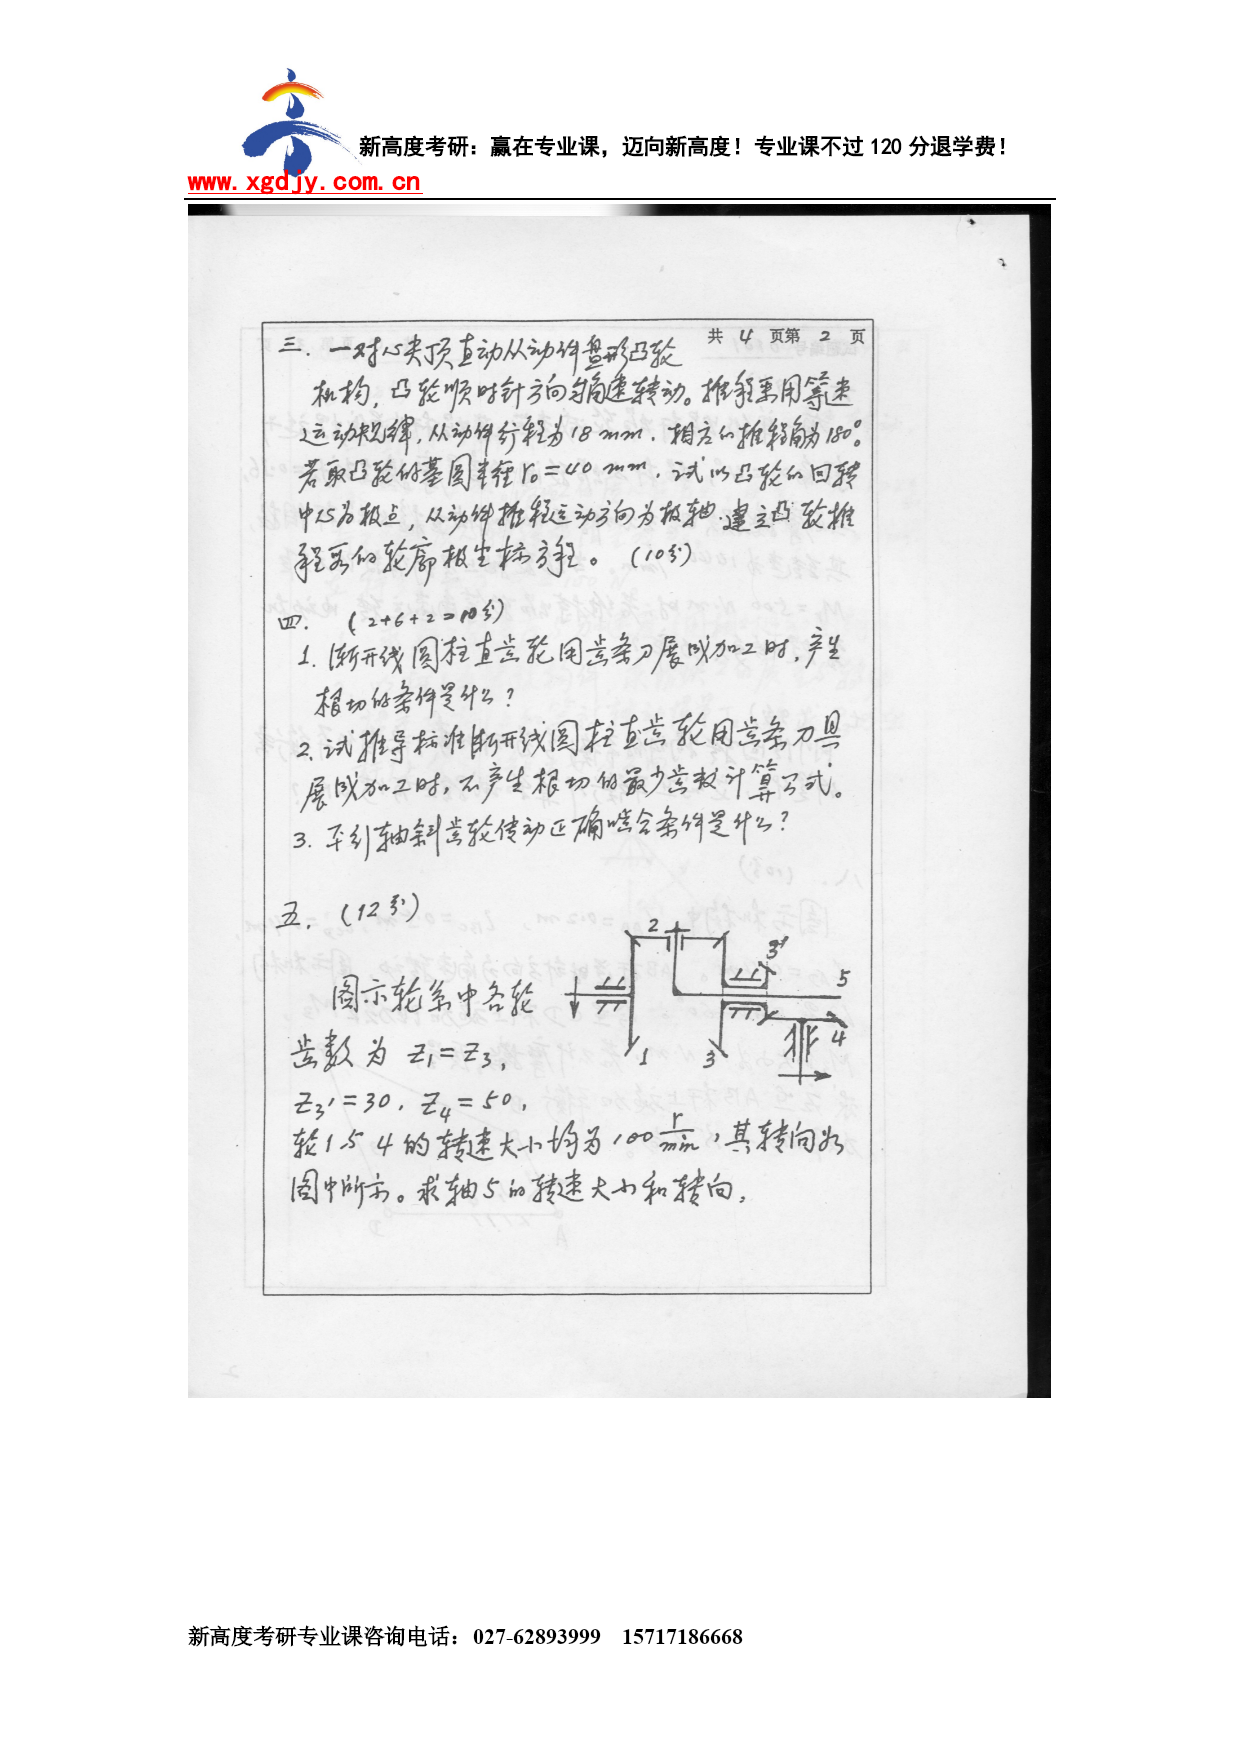 新高度考研：赢在专业课，迈向新高度！专业课不过 120 分退学费！
www.xgdjy.com.cn
共 4 页第 2 页
三．一对心尖顶直动从动件盘形凸轮
机构，凸轮顺时针方向匀角速转动。推程采用等速
运动规律，从动件行程为18 mm，相应的推程角为180°。
若取凸轮的基圆半径 r₀=40 mm，试以凸轮的回转
中心为极点，从动件推程运动方向为极轴，建立凸轮推
程段的轮廓极坐标方程。(10分)
四． (2+6+2=10分)
1. 渐开线圆柱直齿轮用齿条刀展成加工时，产生
根切的条件是什么？
2. 试推导标准渐开线圆柱直齿轮用齿条刀具
展成加工时，不产生根切的最少齿数计算公式。
3. 平行轴斜齿轮传动正确啮合条件是什么？
五． (12分)
图示轮系中各轮
齿数为 Z₁=Z₃，
Z₃'=30，Z₄=50，
轮1与4的转速大小均为100 r/min，其转向如
图中所示。求轴5的转速大小和转向，
2
3'
5
1
3
4
新高度考研专业课咨询电话：027-62893999 15717186668